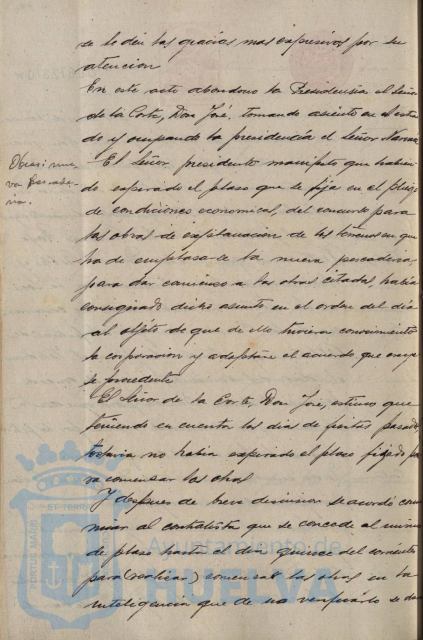 se le den las gracias mas expresivas por su
atencion
En este acto abandono la Presidencia el Señor
de la Corte, Don José, tomando asiento en el estra
do y ocupando la presidencia el Señor
Obras nue
va Pescade
ria.
El Señor presidente manifestó que habien
do expirado el plazo que se fija en el pliego
de condiciones economicas, del concurso para
las obras de explanacion de los terrenos en que
ha de emplazarse la nueva pescaderia,
para dar comienzo a las obras citadas, habia
consignado dicho asunto en el orden del dia
al objeto de que de ello tuviera conocimiento
la corporacion y adoptase el acuerdo que creye
se procedente
El Señor de la Corte, Don José, estimo que
teniendo en cuenta los dias de fiestas pasados
todavia no habia expirado el plazo fijado pa
ra comenzar las obras
Y despues de breve discusion se acordó con
minar al contratista que se concede al mismo
de plazo hasta el dia quince del corriente
para (realizar) comenzar las obras en la
inteligencia que de no verificarlo se dara
PORTUS MARIS ET TERRAE
Ayuntamiento de
HUELVA